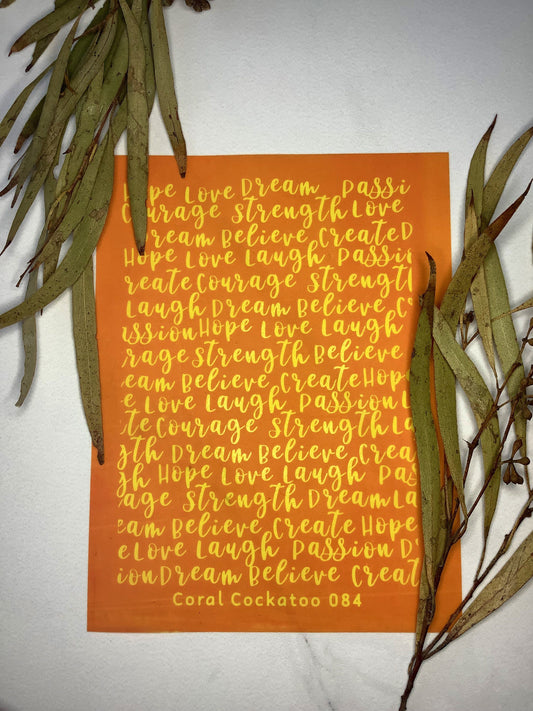 Hope Love Dream Passi
Courage Strength Love
Dream Believe Create D
Hope Love Laugh Passion
reate Courage Strength
Laugh Dream Believe Cr
assion Hope Love Laugh
rage Strength Believe
eam Believe Create Hope
e Love Laugh Passion L
te Courage Strength La
gth Dream Believe Crea
gh Hope Love Laugh Pas
age Strength Dream La
eam Believe Create Hope
e Love Laugh Passion D
ion Dream Believe Creat
Coral Cockatoo 084